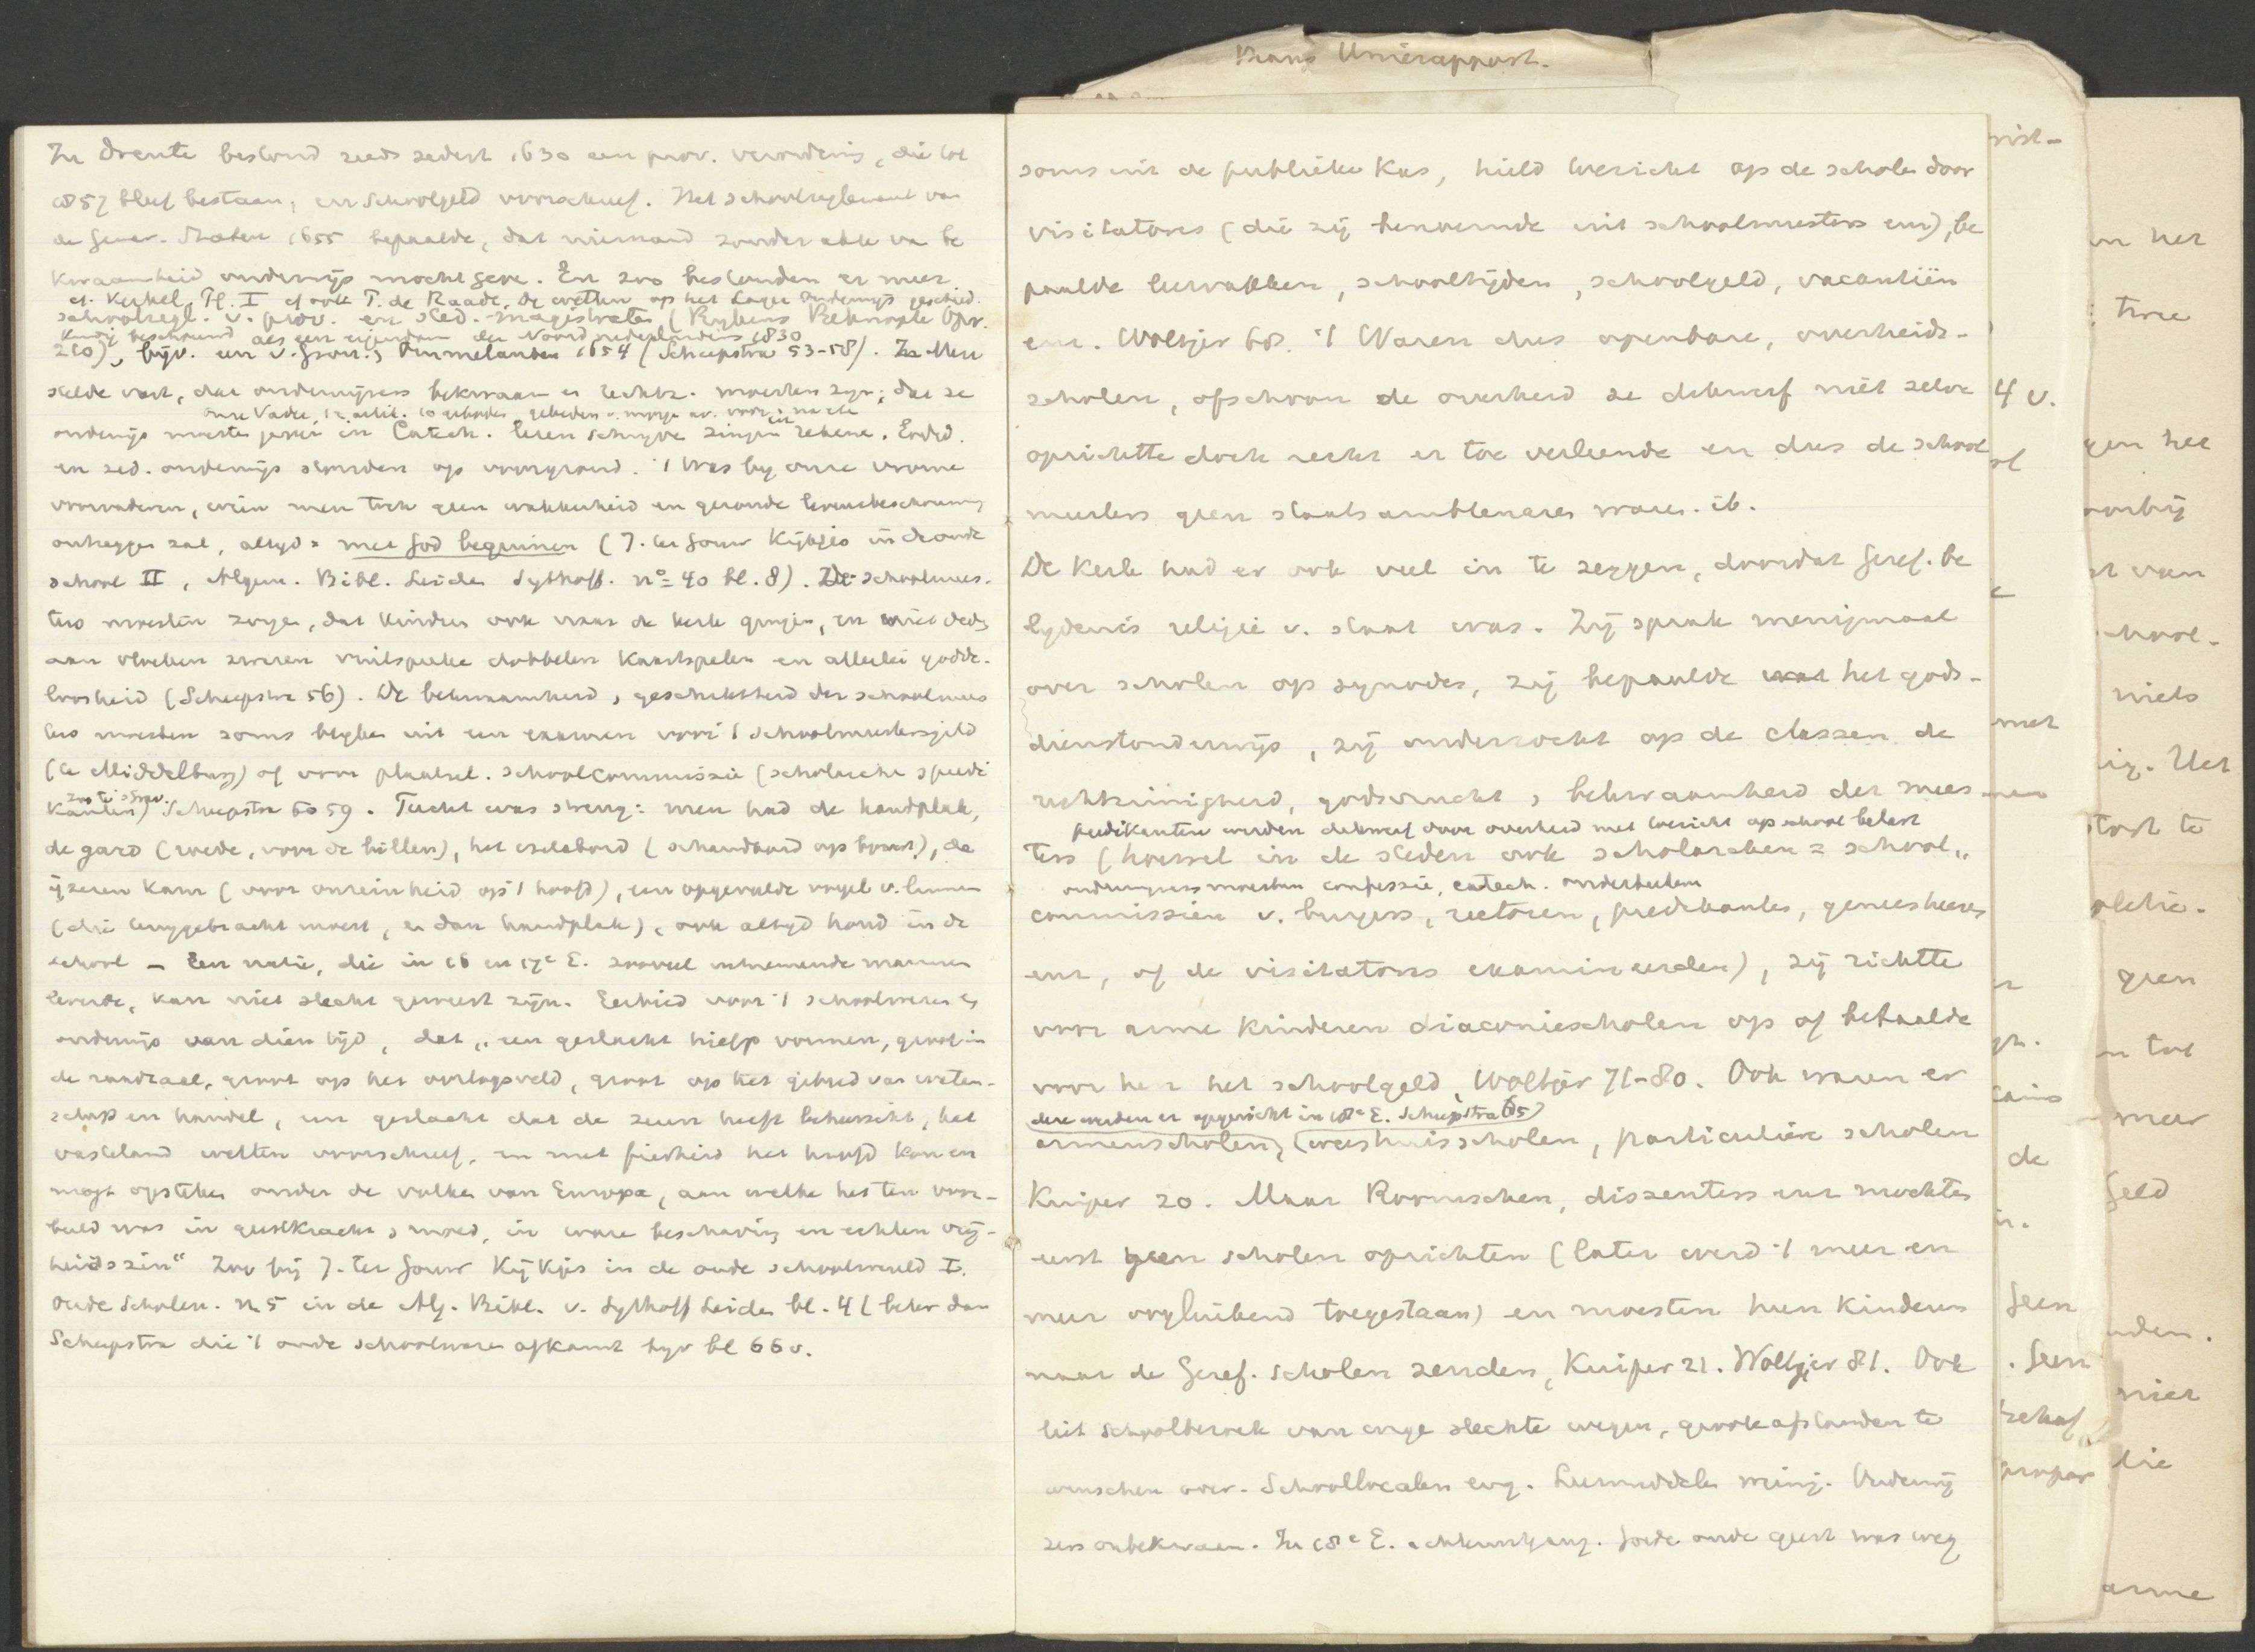 In Drente bestond reeds sedert 1630 een prov. verordenis, die tot
1857 bleef bestaan, en schoolgeld voorschreef. Het schoolreglement van
de Gener. Staten 1655 bepaalde, dat niemand zonder akte van be
kwaamheid onderwijs mocht geven. En zoo bestonden er meer
cf. Kerkel. Tf. I cf ook T. de Raadt, De wetten op het Lager Onderwijs geschied.
schoolregl. v. prov. en sted. magistraten (Rijkens Beknopte Opv.
kundig beschouwd als een eigendom der Noord nederlanders 1830
210), bijv. een v. Gron. & Ommelanden 1654 (Scheepstra 53-58). Men
stelde vast, dat onderwijzers bekwaam en rechtz. moesten zijn; dat ze
onze Vader, 12 artik. 10 geboden, gebeden v. morgen av. voor en na ete
onderwijs moesten geven in Catech. lezen schrijven zingen en rekene. Godsd.
en zed. onderwijs stonden op voorgrond. 't Was bij onze vrome
voorvaderen, wien men toch geen wakkerheid en gezonde levensbeschouwing
ontzeggen zal, altijd: met God beginnen (J. ter Gouw Kijkjes in de oude
school II, Algem. Bibl. Leiden Sythoff. no 40 bl. 8). De schoolmees-
ters moesten zorgen, dat kinders ook naar de kerk gingen, en niet deden
aan vloeken zweren vuilspreke dobbelen kaartspelen en allerlei godde-
loosheid (Scheepstra 56). De bekwaamheid & geschiktheid der schoolmees
ters moesten soms blijken uit een examen voor 't schoolmeestersgild
(te Middelburg) of voor plaatsel. schoolcommissie (scholarchen & predi
zoo te 's Grav.
kanten) Scheepstra 60 59. Tucht was streng: men had de handplak,
de gard (roede, voor de billen), het ezelsbord (schandbord op borst), de
ijzeren kam (voor onreinheid op 't hoofd), een opgevulde vogel v. linnen
(die teruggebracht moest, en dan handplak), ook altijd hond in de
school — Een natie, die in 16 en 17e E. zooveel uitnemende mannen
leverde, kan niet slecht geweest zijn. Eerbied voor 't schoolwezen en
onderwijs van dien tijd, dat "een geslacht hielp vormen, groot in
de raadzaal, groot op het oorlogsveld, groot op het gebied van weten-
schap en handel, een geslacht dat de zeeen heeft beheerscht, het
vasteland wetten voorschreef, en met fierheid het hoofd kon en
mogt opsteken onder de volken van Europa, aan welke het ten voor-
beeld was in geestkracht & moed, in ware beschaving en echten vrij-
heidszin" Zoo bij J. ter Gouw Kijkjes in de oude schoolwereld I.
Oude Scholen. n. 5 in de Alg. Bibl. v. Sythoff Leiden bl. 4 (beter dan
Scheepstra die 't oude schoolwezen afkamt bijv bl 66 v.
Kranz Unierapport.
soms uit de publieke kas, hield toezicht op de scholen door
visitatores (die zij benoemde uit schoolmeesters enz), be
paalde leervakken, schooltijden, schoolgeld, vacantiën
enz. Woltjer 68. 't Waren dus openbare, overheids-
scholen, ofschoon de overheid ze dikwerf niet zelve
oprichtte doch recht er toe verleende en dus de school
meesters geen staatsambtenaren waren. ib.
De Kerk had er ook veel in te zeggen, doordat Geref. be
lijdenis religie v. staat was. Zij sprak menigmaal
over scholen op synodes, zij bepaalde het gods-
dienstonderwijs, zij onderzocht op de classen de
rechtzinnigheid, godsvrucht & bekwaamheid der mees-
predikanten werden dikwerf door overheid met toezicht op school belast
ters (hoewel in de steden ook scholarchen = school"
onderwijzers moesten confessie, catech. onderteekenen
commissien v. burgers, rectoren, predikanten, geneesheeren
enz, of de visitatores examineerden), zij richtte
voor arme kinderen diaconiescholen op of betaalde
voor hen het schoolgeld, Woltjer 71-80. Ook waren er
deze werden er opgericht in 18e E. Scheepstra 65)
armenscholen, (weeshuisscholen, particuliere scholen
Kuiper 20. Maar Roomschen, dissenters enz mochten
eerst geen scholen oprichten (later werd 't meer en
meer oogluikend toegestaan) en moesten hun kinderen
naar de Geref. scholen zenden, Kuiper 21. Woltjer 81. Ook
liet schoolbezoek van enge slechte wegen, groote afstanden te
wenschen over. Schoollocalen erg. Leermiddelen weinig. Onderwij
zers onbekwaam. In 18e E. achteruitgang. Goede oude geest was weg
4 v.
met
de
Geen
. Geen
en het
twee
gen het
voorbij
van
school-
niets
Het
te
geen
tot
meer
Geld
nden.
niet
die
arme